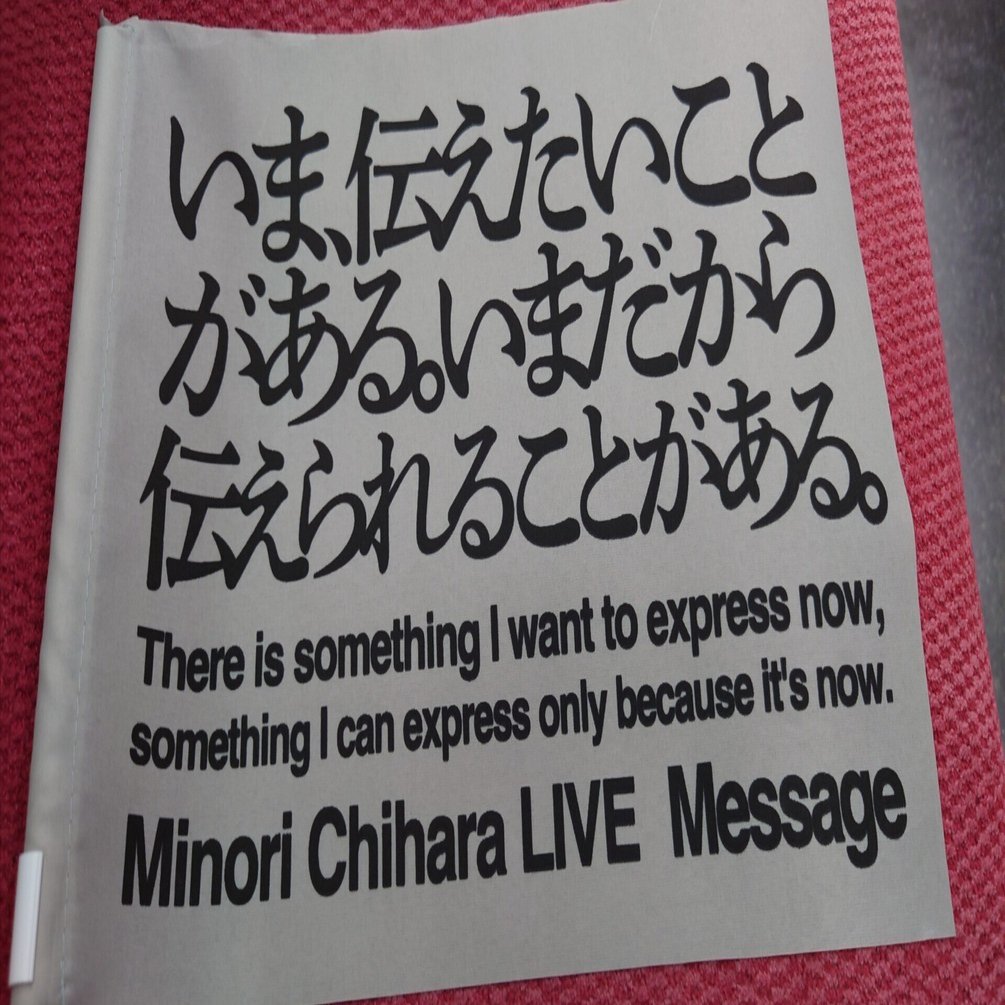 いま、伝えたいこと
がある。いまだから
伝えられることがある。
There is something I want to express now,
something I can express only because it's now.
Minori Chihara LIVE Message